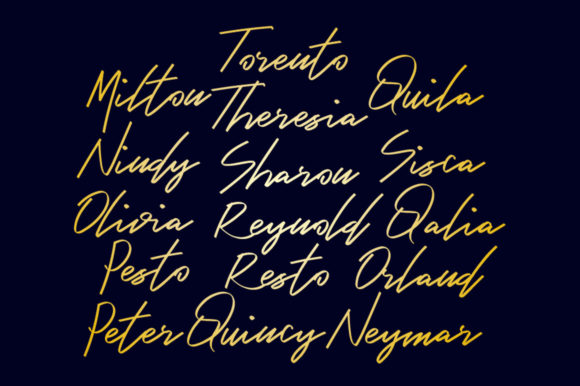 Torento
Milton Theresia Quila
Nindy Sharon Sisca
Olivia Reynold Qalia
Pesto Resto Orland
Peter Quincy Neymar